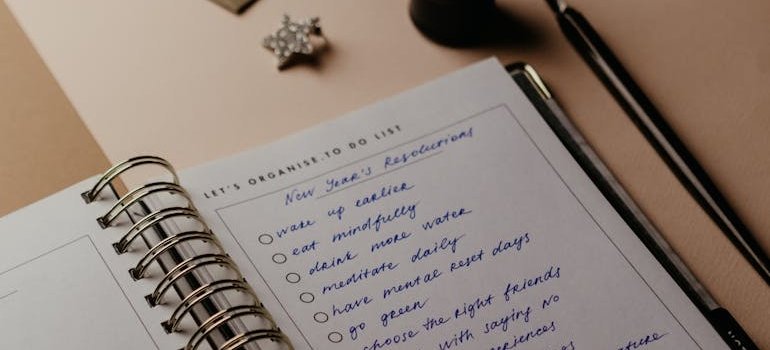 LET'S ORGANISE.TO DO LIST
New Year's Resolutions
wake up earlier
eat mindfully
drink more water
meditate daily
have mental reset days
go green
choose the right friends
with saying no